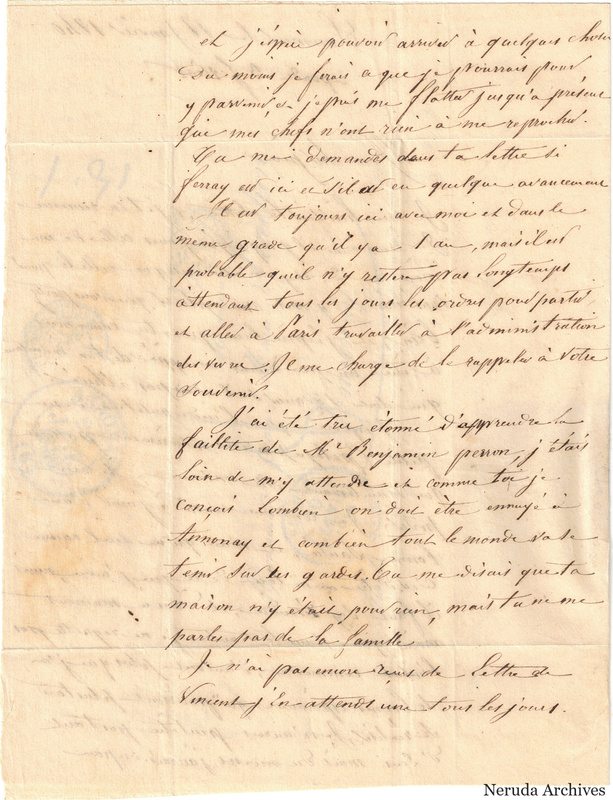 et j'espère pouvoir arriver à quelques chose
Du moins je ferais ce que je pourrais pour
y parvenir, je puis me flatter jusqu'a présent
que mes chefs n'ont rien à me reprocher.
Tu me demandes dans ta lettre si
ferray est ici et s'il a eu quelque avancement
Il est toujours ici avec moi et dans le
même grade qu'il y a 1 an, mais il est
probable qu'il n'y restera pas longtemps
attendant tous les jours les ordres pour partir
et aller à Paris travailler à l'administration
des vivres. Il me charge de le rappeler à votre
souvenir.
J'ai été tres étonné d'apprendre la
faillite de Mr Benjamin perron, j'étais
loin de m'y attendre et comme toi je
conçois combien on doit être ennuyé à
Annonay et combien tout le monde va se
tenir sur ses gardes. Tu me disais que ta
maison n'y était pour rien, mais tu ne me
parles pas de la famille
Je n'ai pas encore reçus de lettre de
Vincent j'En attends une tous les jours.
Neruda Archives